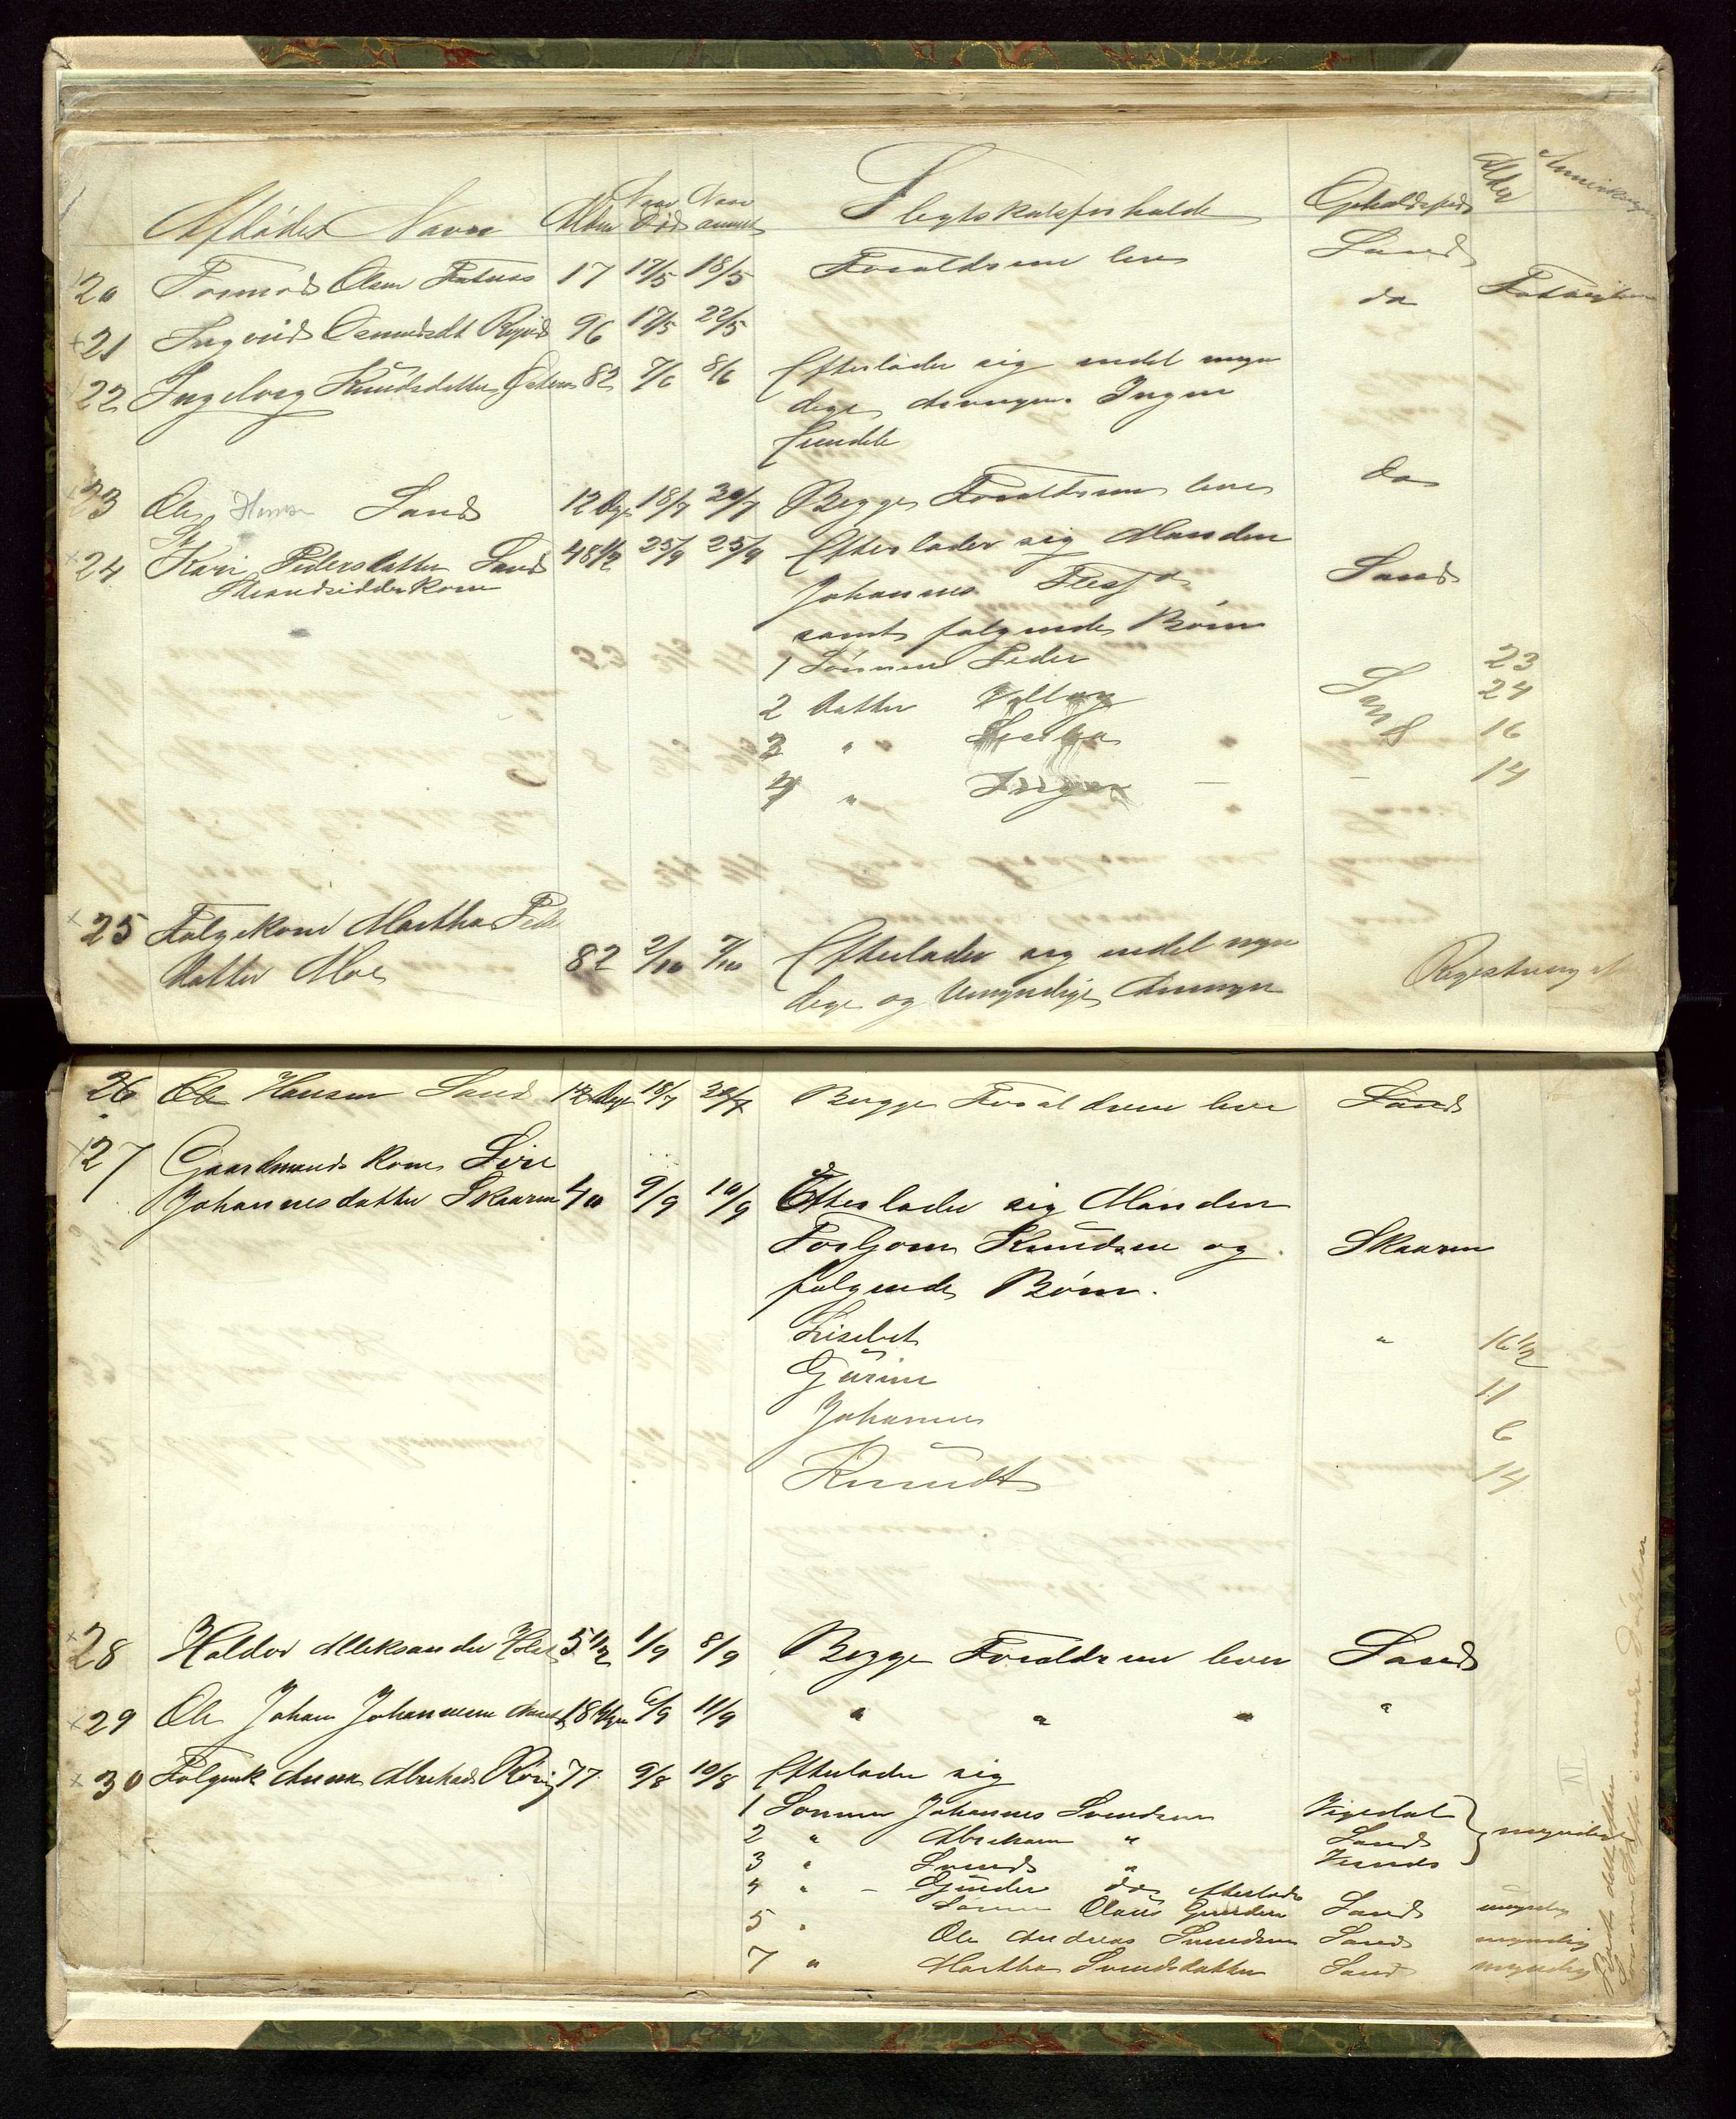 Afdødes Navn Alder Naar Død Naar anmeldt Slegtskabsforholde Opholdssted Alder Anmerkninger
20 Tormod Olsen 17 17/5 18/5 Foraldrene leve Sand
21 Ingerid Osmundsdt 96 17/5 22/5 do
22 Ingeborg Knudsdatter 82 7/6 8/6 Efterlader sig endel myn
dige Arvinger. Ingen
Umndde
23 Ole Hansen Sand 12 Dage 18/7 20/7 Begge Foraldrene leve do
24 Kari Pedersdatter Sand 48 1/2 25/9 25/9 Efterlader sig Manden
Strandsidderkone
Johannes Sand
samt følgende Børn
1 Sønnen Peder 23
2 Datter Sand 24
3 " " 16
4 " Inger — — 14
25 Følgekone Martha Peder
datter Moe 82 2/10 7/10 Efterlader sig endel myn
dige og Umyndige Arvinger
26 Ole Hansen Sand 12 Dage 18/7 20/7 Begge Foraldrene leve Sand
27 Gaardmands Kone Siri
Johannesdatter Skaaren 40 9/9 10/9 Efterlader sig Manden
Torbjørn Knudsen og Skaaren
følgende Børn.
Lisebet " 16 1/2
Gurine 11
Johannes 6
Knudt 14
28 Haldor Alleksander 5 1/2 1/9 8/9 Begge Foraldrene lever Sand
29 Ole Johan Johannesen 18 Dage 6/9 11/9 " " " "
30 Følgek Anna Abrahads 77 9/8 10/8 Efterlader sig
1 Sønnen Johannes Svendsen Vigedal
2 " Abraham " Sand myndige
3 " Svend "
4 " — Gunder død efterlader
Sønnen Claus Gundersen Sand umyndig
5 " Ole Andreas Svendsen Sand myndig
7 " Martha Svendsdatter Sand myndig